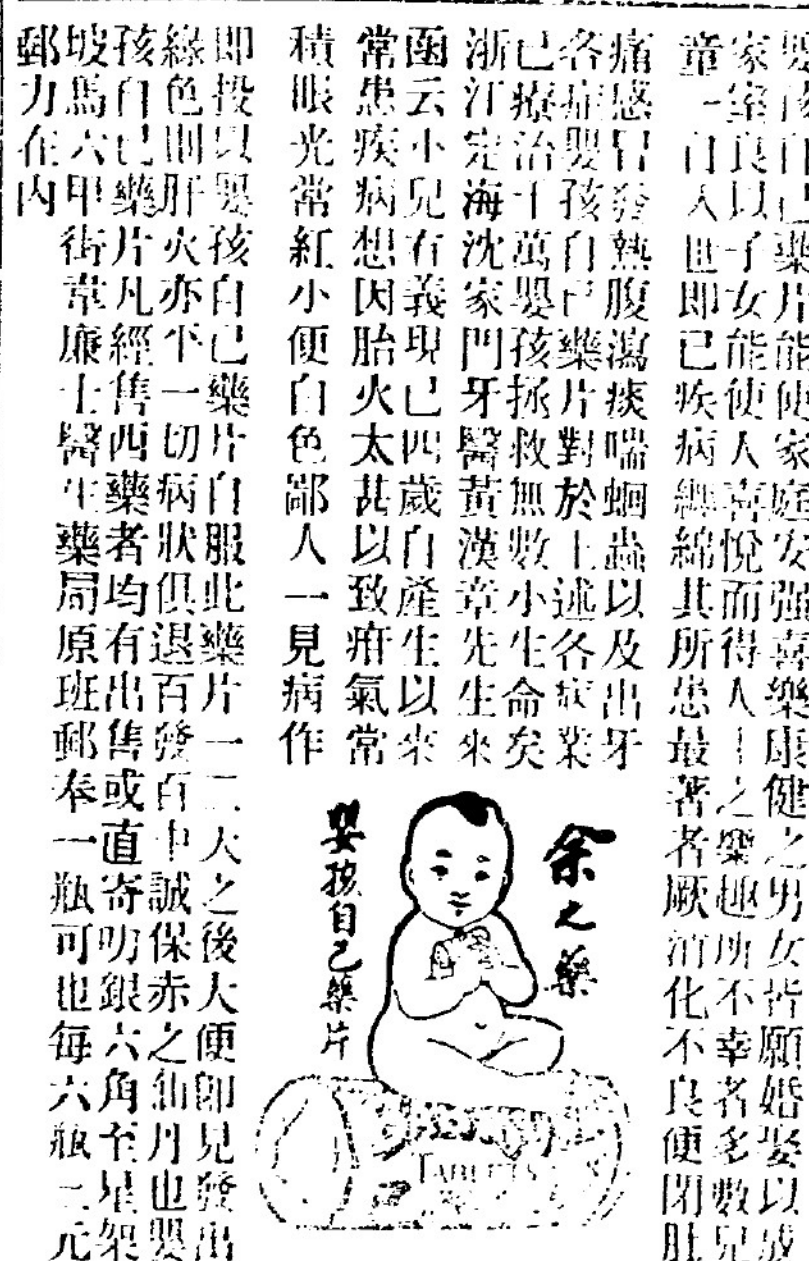 嬰孩自己藥片能使家庭安强喜樂康健之男女皆願婚娶以成
家室良以子女能使人喜悅而得人之樂趣所不幸者多數兒
童一自入世即已疾病纏綿其所患最著者厥消化不良便閉肚
痛感冒發熱腹瀉痰喘蛔蟲以及出牙
各症嬰孩自己藥片對於上述各病業
已療治千萬嬰孩拯救無數小生命矣
浙江定海沈家門牙醫黃漢章先生來
函云小兒有義現已四歲自產生以來
常患疾病想因胎火太甚以致疳氣常
積眼光常紅小便白色鄙人一見病作
余之藥
嬰孩自己藥片
TABLETS
即投以嬰孩自己藥片自服此藥片一二天之後大便即見發出
綠色則肝火亦平一切病狀俱退百發百中誠保赤之仙丹也嬰
孩自己藥片凡經售西藥者均有出售或直寄叻銀六角至星架
坡馬六甲街韋廉士醫生藥局原班郵奉一瓶可也每六瓶三元
郵力在內